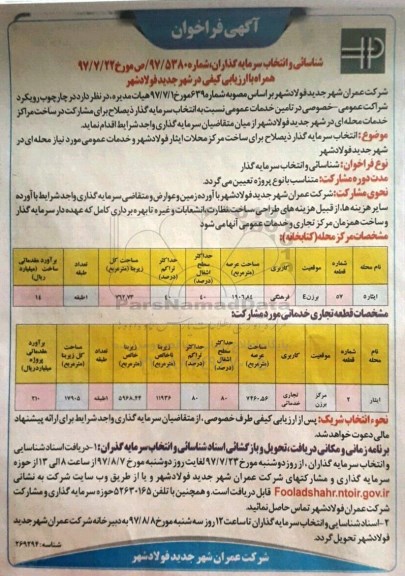 آگهی فراخوان
شناسائی و انتخاب سرمایه گذاران، شماره ۹۷/۵۳۸۰/ص مورخ ۹۷/۷/۲۲
همراه با ارزیابی کیفی در شهر جدید فولادشهر
شرکت عمران شهر جدید فولادشهر بر اساس مصوبه شماره ۶۳۹ مورخ ۹۷/۷/۱ هیات مدیره، در نظر دارد در چارچوب رویکرد
شراکت عمومی - خصوصی در تامین خدمات عمومی نسبت به انتخاب سرمایه گذار ذیصلاح برای مشارکت در ساخت مراکز
خدمات محله ای در شهر جدید فولادشهر از میان متقاضیان سرمایه گذاری واجد شرایط اقدام نماید.
موضوع: انتخاب سرمایه گذار ذیصلاح برای ساخت مرکز محلات ایثار فولادشهر و خدمات عمومی مورد نیاز محله ای در
شهر جدید فولادشهر
نوع فراخوان: شناسائی و انتخاب سرمایه گذار
مدت دوره مشارکت: متناسب با نوع پروژه تعیین می گردد.
نحوی مشارکت: شرکت عمران شهر جدید فولادشهر با آورده زمین و عوارض و متقاضی سرمایه گذاری واجد شرایط با آورده
سایر هزینه ها، از قبیل هزینه های طراحی، ساخت، نظارت، انشعابات و غیره تا بهره برداری کامل که عهده دار سرمایه گذار
و ساخت همزمان مرکز تجاری و خدمات عمومی آنها می شود
مشخصات مرکز محله (کتابخانه):
نام محله شماره قطعه موقعیت کاربری مساحت عرصه (مترمربع) حداکثر سطح اشغال (درصد) حداکثر تراکم (درصد) مساحت کل زیربنا (مترمربع) تعداد طبقه برآورد مقدماتی ساخت (میلیارد ریال)
ایثار ۵۷ برزن ۴ فرهنگی ۱۹۰۶,۸۴ ۴۰ ۴۰ ۷۶۲,۷۳ ۱طبقه ۱۴
ParsNamadData
مشخصات قطعه تجاری خدماتی مورد مشارکت:
نام محله شماره قطعه موقعیت کاربری مساحت عرصه (مترمربع) حداکثر سطح اشغال (درصد) حداکثر تراکم (درصد) مساحت زیربنا ناخالص (مترمربع) مساحت زیربنا خالص (مترمربع) تعداد طبقه مساحت کل زیربنا (مترمربع) برآورد مقدماتی پروژه میلیارد ریال
ایثار ۲ مرکز برزن تجاری خدماتی ۷۴۶۰,۵۶ ۸۰ ۸۰ ۱۱۹۳۶ ۵۹۶۸,۴۴ ۱طبقه ۱۷۹۰۵ ۲۱۰
نحوه انتخاب شریک: پس از ارزیابی کیفی طرف خصوصی، از متقاضیان سرمایه گذاری واجد شرایط برای ارائه پیشنهاد
مالی دعوت خواهد شد.
برنامه زمانی و مکانی دریافت، تحویل و بازگشائی اسناد شناسائی و انتخاب سرمایه گذران: ۱- دریافت اسناد شناسایی
و انتخاب سرمایه گذاران، از روز دوشنبه مورخ ۹۷/۷/۲۳ لغایت روز دوشنبه مورخ ۹۷/۸/۷ از ساعت ۸ الی ۱۳ از حوزه
سرمایه گذاری و مشارکتهای شرکت عمران شهر جدید فولادشهر و یا از طریق وب سایت شرکت به نشانی
Fooladshahr.ntoir.gov.ir قابل دریافت است. و همچنین با تلفن ۱۶۵-۵۲۶۳ حوزه سرمایه گذاری و مشارکت
شرکت عمران فولادشهر تماس حاصل نمائید.
۲- اسناد شناسایی و انتخاب سرمایه گذاران تا ساعت ۱۲ روز سه شنبه مورخ ۹۷/۸/۸ به دبیرخانه شرکت عمران شهر جدید
فولادشهر تحویل گردد.
شناسه: ۲۶۹۲۹۶
شرکت عمران شهر جدید فولادشهر